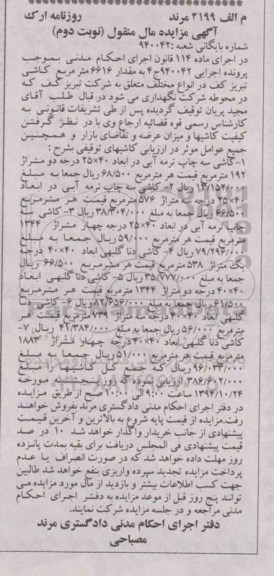 م الف ۲۱۹۹ مرند روزنامه ارک
آگهی مزایده مال منقول (نوبت دوم)
شماره بایگانی شعبه: ۹۴۰۰۴۲
در اجرای ماده ۱۱۴ قانون اجرای احکام مدنی بموجب
پرونده اجرایی ۹۴۰۰۴۲ج۴ به مقدار ۶۶۱۶ متر مربع کاشی
تبریز کف در انواع مختلف متعلق به شرکت تبریز کف که
در محوطه شرکت نگهداری می شود در قبال طلب آقای
مجید پریان توقیف گردیده پس از طی تشریفات قانونی به
کارشناس رسمی قوه قضائیه ارجاع وی با در نظر گرفتن
کیفت کاشیها و میزان عرضه و تقاضای بازار و همچنین
جمیع عوامل موثر در ارزیابی کاشیهای توقیفی بشرح:
۱-کاشی سه چاپ ترمه آبی در ابعاد ۴۰×۲۵ درجه دو متراژ
۱۹۲ مترمربع قیمت هر مترمربع ۶۸/۵۰۰ ریال جمعا به مبلغ
۱۳/۱۵۲/۰۰۰ ریال ۲- کاشی سه چاپ ترمه آبی در ابعاد
۴۰×۲۵ درجه سه متراژ ۵۷۶ مترمربع قیمت هر مترمربع
۶۶/۵۰۰ ریال جمعا به مبلغ ۳۸/۳۰۴/۰۰۰ ریال ۳- کاشی سه
چاپ ترمه آبی در ابعاد ۴۰×۲۵ درجه چهار متراژ ۱۳۴۴
مترمربع قیمت هر مترمربع ۵۹/۰۰۰ ریال جمعا به مبلغ
۷۹/۲۹۶/۰۰۰ ریال ۴- کاشی دنا گلبهی ابعاد ۴۰×۴۰ درجه
یک متراژ ۵۳۸ مترمربع قیمت هر مترمربع ۶۶/۵۰۰ ریال
جمعا به مبلغ ۳۵/۷۷۷/۰۰۰ ریال ۵- کاشی دنا گلبهی ابعاد
۴۰×۴۰ درجه دو متراژ ۱۳۴۴ مترمربع قیمت هر مترمربع
۶۱/۵۰۰ ریال جمعا به مبلغ ۸۲/۶۵۶/۰۰۰ ریال ۶- کاشی دنا
گلبهی ابعاد ۴۰×۴۰ درجه سه متراژ ۷۳۹ مترمربع قیمت هر
مترمربع ۵۶/۰۰۰ ریال جمعا به مبلغ ۴۱/۳۸۴/۰۰۰ ریال ۷-
کاشی دنا گلبهی ابعاد ۴۰×۴۰ درجه چهار متراژ ۱۸۸۳
مترمربع قیمت هر مترمربع ۵۱/۰۰۰ ریال جمعا به مبلغ
۹۶/۰۳۳/۰۰۰ ریال که جمع کل کاشیها را مبلغ
۳۸۶/۶۰۲/۰۰۰ ارزیابی نموده که روز پنجشنبه مورخه
۱۳۹۴/۱۰/۲۴ ساعت ۹:۰۰ الی ۱۰:۰۰ صبح از طریق مزایده
در دفتر اجرای احکام مدنی دادگستری مرند بفروش خواهند
رفت. مزایده از قیمت پایه شروع به بالاترین و آخرین قیمت
پیشنهادی از جانب خریدار واگذار خواهد شد. ۱۰ در صد
قیمت پیشنهادی فی المجلس دریافت برای بقیه بمدت پانزده
روز مهلت داده خواهد شد که در صورت انصراف یا عدم
پرداخت مزایده تجدید سپرده واریزی بنفع خواهد شد طالبین
جهت کسب اطلاعات بیشتر و بازدید از مال مورد مزایده می
توانند پنج روز قبل از موعد مزایده به دفتر اجرای احکام
مدنی مراجعه و در جلسه مزایده شرکت نمایند.
دفتر اجرای احکام مدنی دادگستری مرند
مصباحی